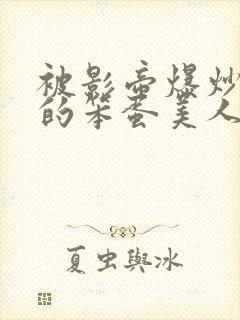 被影帝爆炒
的笨蛋美人
夏虫與冰